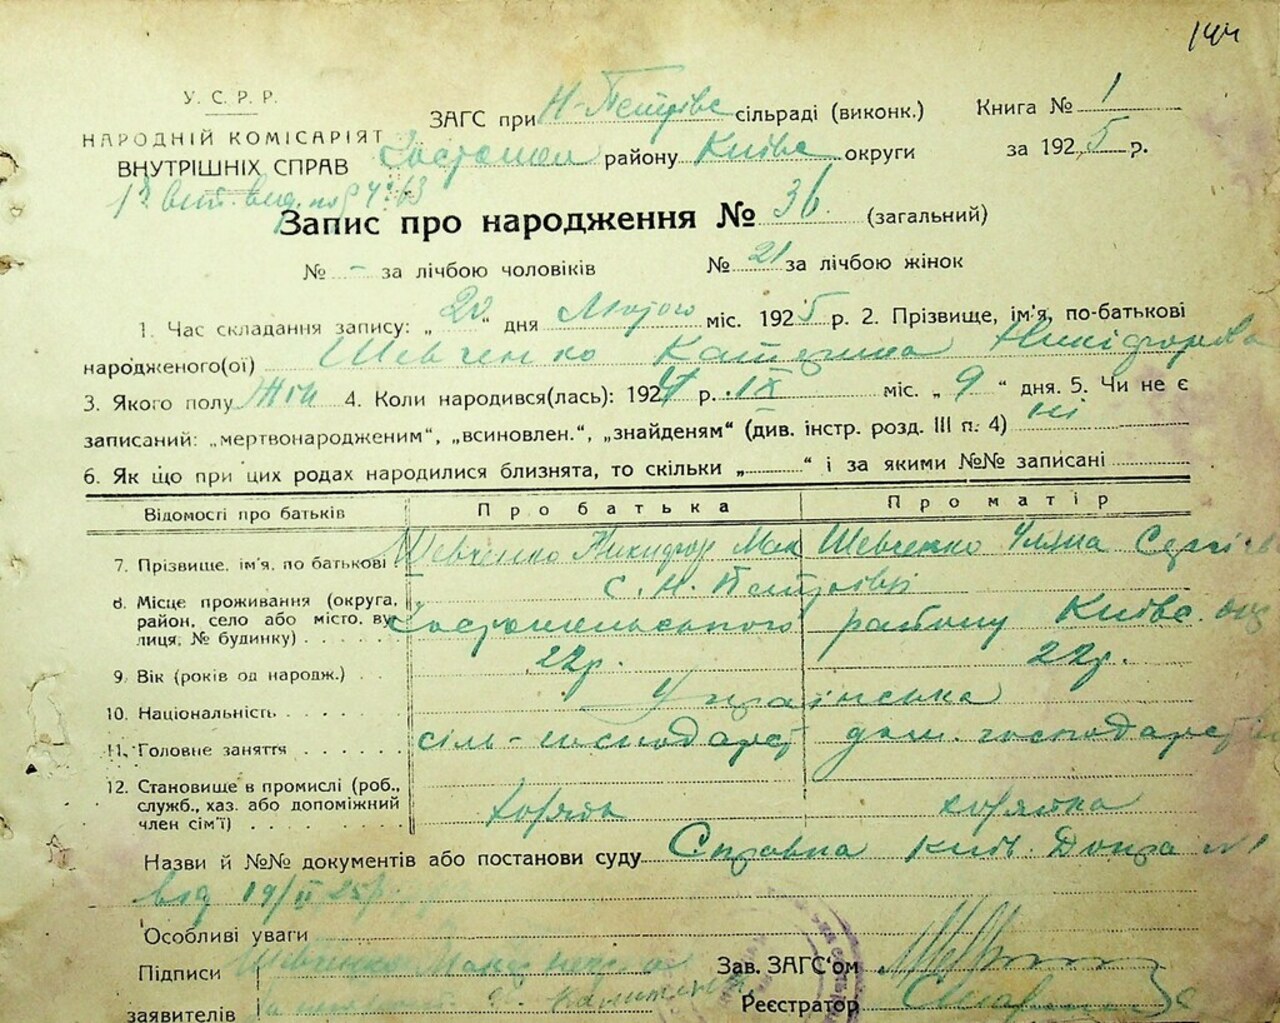 144
У. С. Р. Р.
НАРОДНІЙ КОМІСАРІЯТ
ВНУТРІШНІХ СПРАВ
ЗАГС при Н-Петрівс сільраді (виконк.) Книга № 1
району Київс округи за 1925 р.
Запис про народження № 36 (загальний)
№ - за лічбою чоловіків № 21 за лічбою жінок
1. Час складання запису: „20“ дня Лютого міс. 1925 р. 2. Прізвище, ім'я, по-батькові
народженого(ої) Шевченко Катерина Никіфорова
3. Якого полу Жін 4. Коли народився(лась): 1924 р. IX міс. „9“ дня. 5. Чи не є
записаний: „мертвонародженим“, „всиновлен.“, „знайденям“ (див. інстр. розд. III п. 4) ні
6. Як що при цих родах народилися близнята, то скільки „ “ і за якими №№ записані
Відомості про батьків Про батька Про матір
7. Прізвище, ім'я, по батькові Шевченко Никифор Мак Шевченко Уляна Сергіїв
8. Місце проживання (округа, с. Н. Петрівці
район, село або місто, ву-
лиця, № будинку) району Київс. окр
9. Вік (років од народж.) 22р. 22р.
10. Національність Українська
11. Головне заняття сіль-господарст дом. господарст
12. Становище в промислі (роб.,
служб., хаз. або допоміжний
член сім'ї)
Назви й №№ документів або постанови суду Справка Київ. Допра № 1
від 19/II 25р.
Особливі уваги
Підписи Шевченко
заявителів
Зав. ЗАГС'ом
Реєстратор